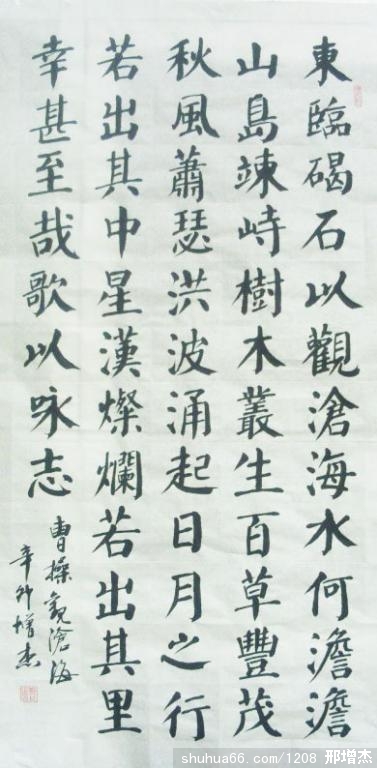 東臨碣石以觀滄海水何澹澹
山島竦峙樹木叢生百草豐茂
秋風蕭瑟洪波涌起日月之行
若出其中星漢燦爛若出其里
幸甚至哉歌以咏志
曹操觀滄海
辛卯增杰
shuhua66.com/1208 邢增杰